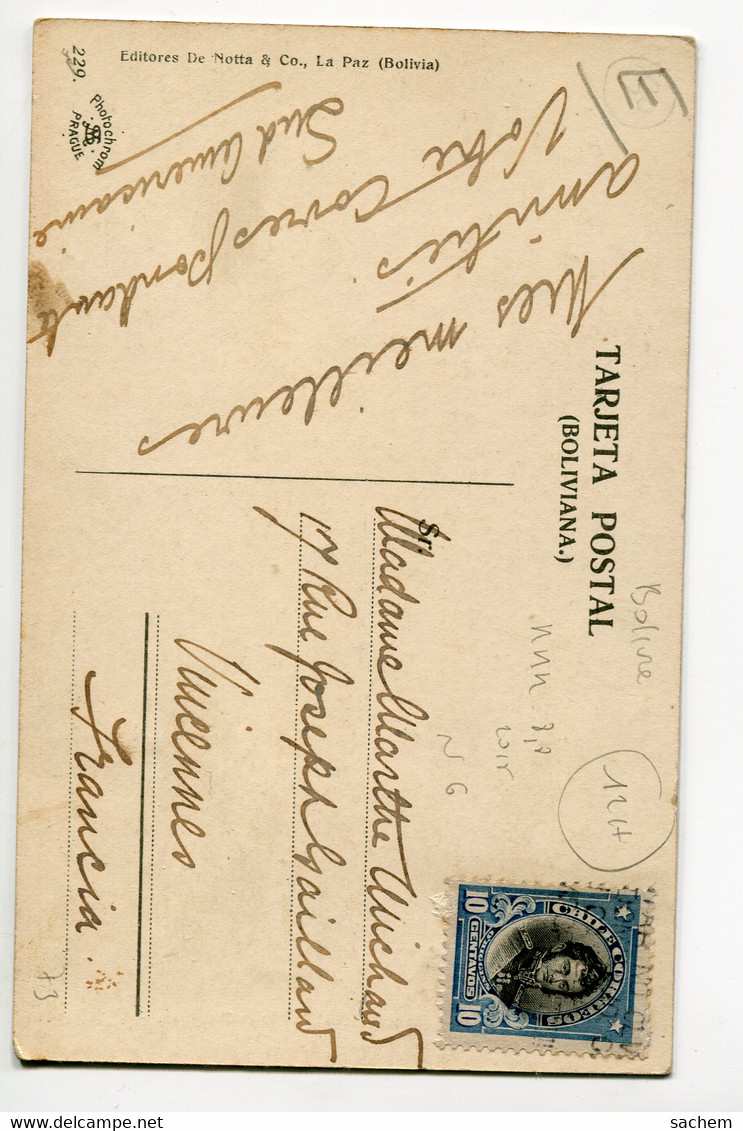 TARJETA POSTAL
(BOLIVIANA.)
Mes meilleures
amitiés
Votre Correspondante
Sud américaine
Editores De Notta & Co., La Paz (Bolivia)
229.
Photochrom
PRAGUE
Sr.
Madame Marthe Michaud
17 Rue Joseph Gaillard
Vincennes
Francia.
CHILE CORREOS
10 CENTAVOS 10
E
12H
N G
73
delcampe.net
sachem